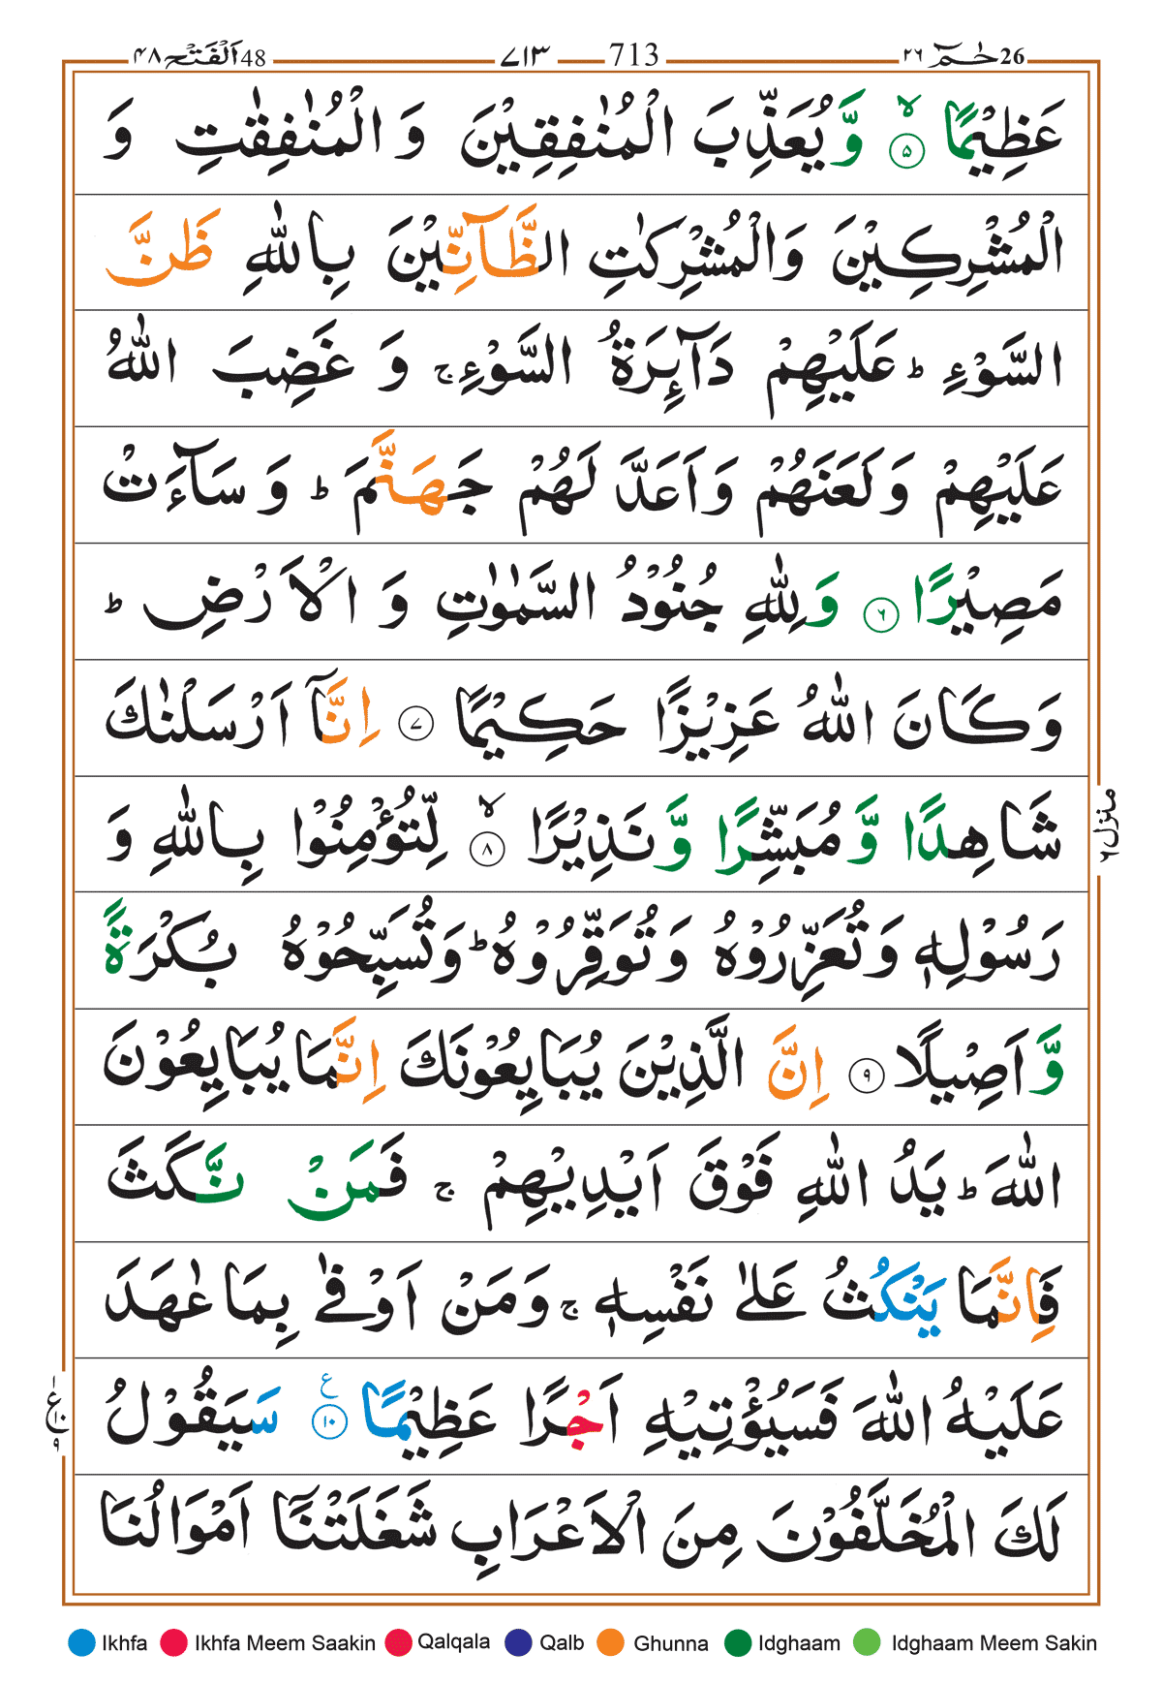 اَلْفَتْح 48 ۴۸ ۷۱۳ 713 حٰمٓ 26 ۲۶
عَظِیْمًا ۙ﴿۵﴾ وَّیُعَذِّبَ الْمُنٰفِقِیْنَ وَ الْمُنٰفِقٰتِ وَ
الْمُشْرِكِیْنَ وَالْمُشْرِكٰتِ الظَّآنِّیْنَ بِاللّٰهِ ظَنَّ
السَّوْءِ ؕ عَلَیْهِمْ دَآىِٕرَةُ السَّوْءِ ۚ وَ غَضِبَ اللّٰهُ
عَلَیْهِمْ وَلَعَنَهُمْ وَاَعَدَّ لَهُمْ جَهَنَّمَ ؕ وَ سَآءَتْ
مَصِیْرًا ﴿۶﴾ وَلِلّٰهِ جُنُوْدُ السَّمٰوٰتِ وَ الْاَرْضِ ؕ
وَكَانَ اللّٰهُ عَزِیْزًا حَكِیْمًا ﴿۷﴾ اِنَّاۤ اَرْسَلْنٰكَ
شَاهِدًا وَّ مُبَشِّرًا وَّ نَذِیْرًا ۙ﴿۸﴾ لِّتُؤْمِنُوْا بِاللّٰهِ وَ
منزل ۶
رَسُوْلِهٖ وَتُعَزِّرُوْهُ وَتُوَقِّرُوْهُ ؕ وَتُسَبِّحُوْهُ بُكْرَةً
وَّ اَصِیْلًا ﴿۹﴾ اِنَّ الَّذِیْنَ یُبَایِعُوْنَكَ اِنَّمَا یُبَایِعُوْنَ
اللّٰهَ ؕ یَدُ اللّٰهِ فَوْقَ اَیْدِیْهِمْ ۚ فَمَنْ نَّكَثَ
فَاِنَّمَا یَنْكُثُ عَلٰی نَفْسِهٖ ۚ وَمَنْ اَوْفٰی بِمَا عٰهَدَ
عَلَیْهُ اللّٰهَ فَسَیُؤْتِیْهِ اَجْرًا عَظِیْمًا ﴿۱۰﴾ ع سَیَقُوْلُ
ع ۱ ۱۰ ۹
لَكَ الْمُخَلَّفُوْنَ مِنَ الْاَعْرَابِ شَغَلَتْنَاۤ اَمْوَالُنَا
Ikhfa Ikhfa Meem Saakin Qalqala Qalb Ghunna Idghaam Idghaam Meem Sakin